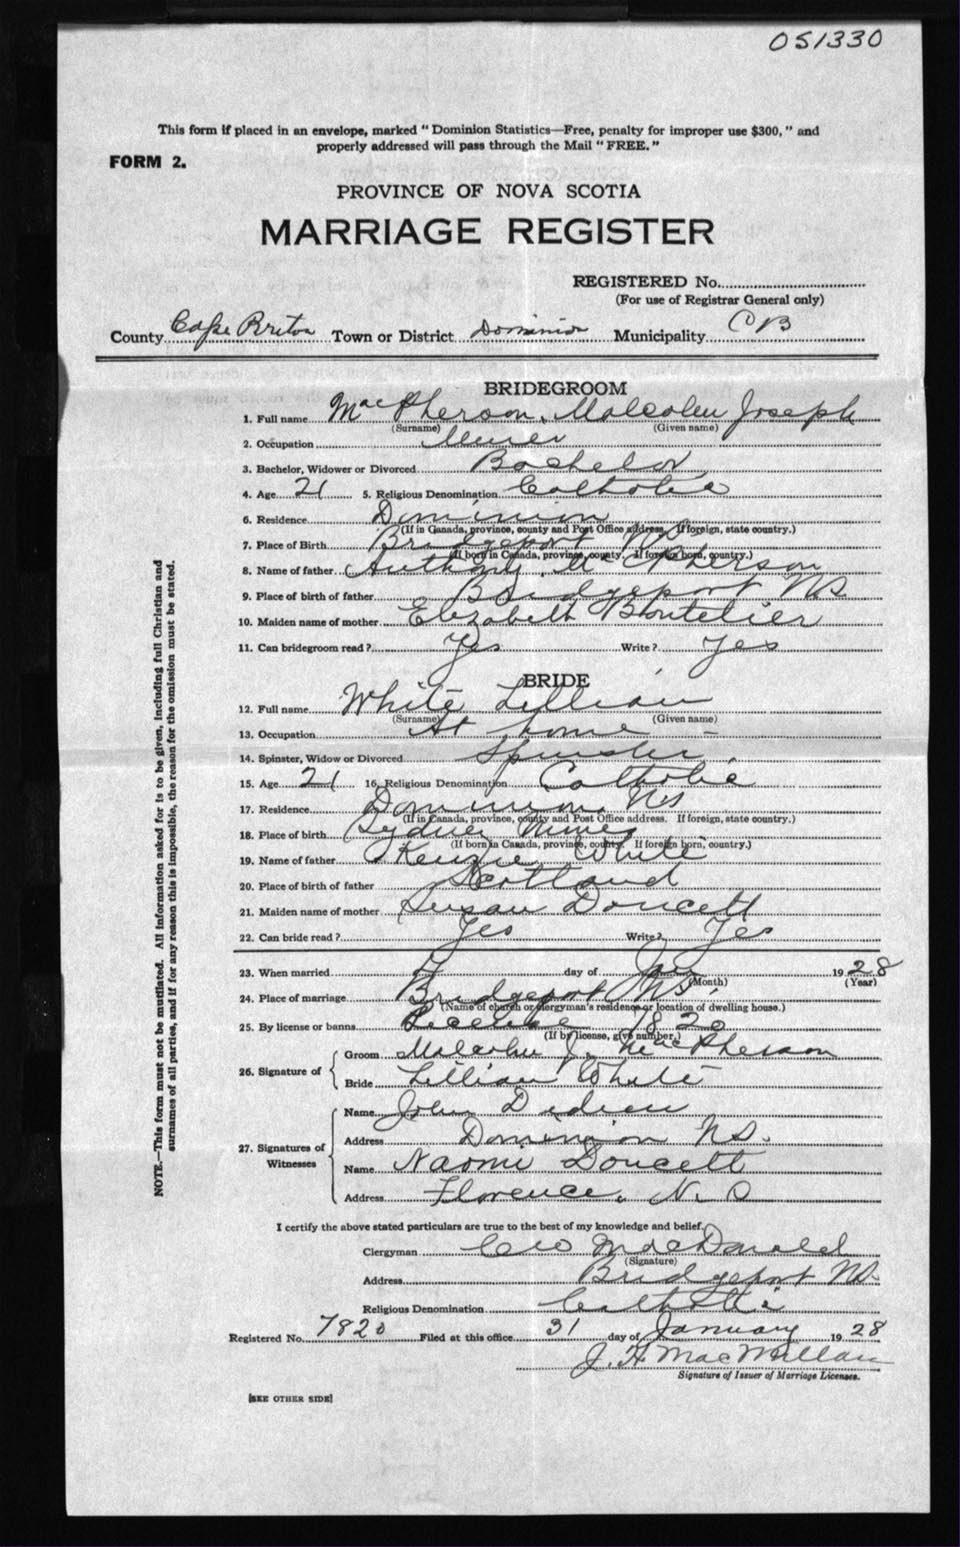 051330
This form if placed in an envelope, marked "Dominion Statistics—Free, penalty for improper use $300," and
properly addressed will pass through the Mail "FREE."
FORM 2.
PROVINCE OF NOVA SCOTIA
MARRIAGE REGISTER
REGISTERED No.
(For use of Registrar General only)
County Cape Breton Town or District Dominion Municipality CB
BRIDEGROOM
1. Full name MacPherson, Malcolm Joseph
(Surname) (Given name)
2. Occupation Miner
3. Bachelor, Widower or Divorced Bachelor
4. Age 21 5. Religious Denomination Catholic
6. Residence Dominion
(If in Canada, province, county and Post Office address. If foreign, state country.)
7. Place of Birth Bridgeport NS
(If born in Canada, province, county. If foreign born, country.)
8. Name of father Anthony McPherson
9. Place of birth of father Bridgeport NS
10. Maiden name of mother Elizabeth Boutelier
11. Can bridegroom read? Yes Write? Yes
BRIDE
12. Full name White Lillian
(Surname) (Given name)
13. Occupation At home
14. Spinster, Widow or Divorced Spinster
15. Age 21 16. Religious Denomination Catholic
17. Residence Dominion, NS
(If in Canada, province, county and Post Office address. If foreign, state country.)
18. Place of birth Sydney Mines
(If born in Canada, province, county. If foreign born, country.)
19. Name of father Kenzie White
20. Place of birth of father Scotland
21. Maiden name of mother Susan Doucett
22. Can bride read? Yes Write? Yes
23. When married day of Jan 1928
(Month) (Year)
24. Place of marriage Bridgeport NS,
(Name of church or clergyman's residence or location of dwelling house.)
25. By license or banns License 7820
(If by license, give number.)
26. Signature of Groom Malcolm J. MacPherson
Bride Lillian White
27. Signatures of Witnesses Name John
Address Dominion NS.
Name Naomi Doucett
Address Florence, N.S
I certify the above stated particulars are true to the best of my knowledge and belief.
Clergyman MacDonald
(Signature)
Address Bridgeport NS.
Religious Denomination Catholic
Registered No. 7820 Filed at this office 31 day of January 1928
J. H. MacMillan
Signature of Issuer of Marriage Licenses.
[SEE OTHER SIDE]
NOTE.—This form must not be mutilated. All information asked for is to be given, including full Christian and
surnames of all parties, and if for any reason this is impossible, the reason for the omission must be stated.